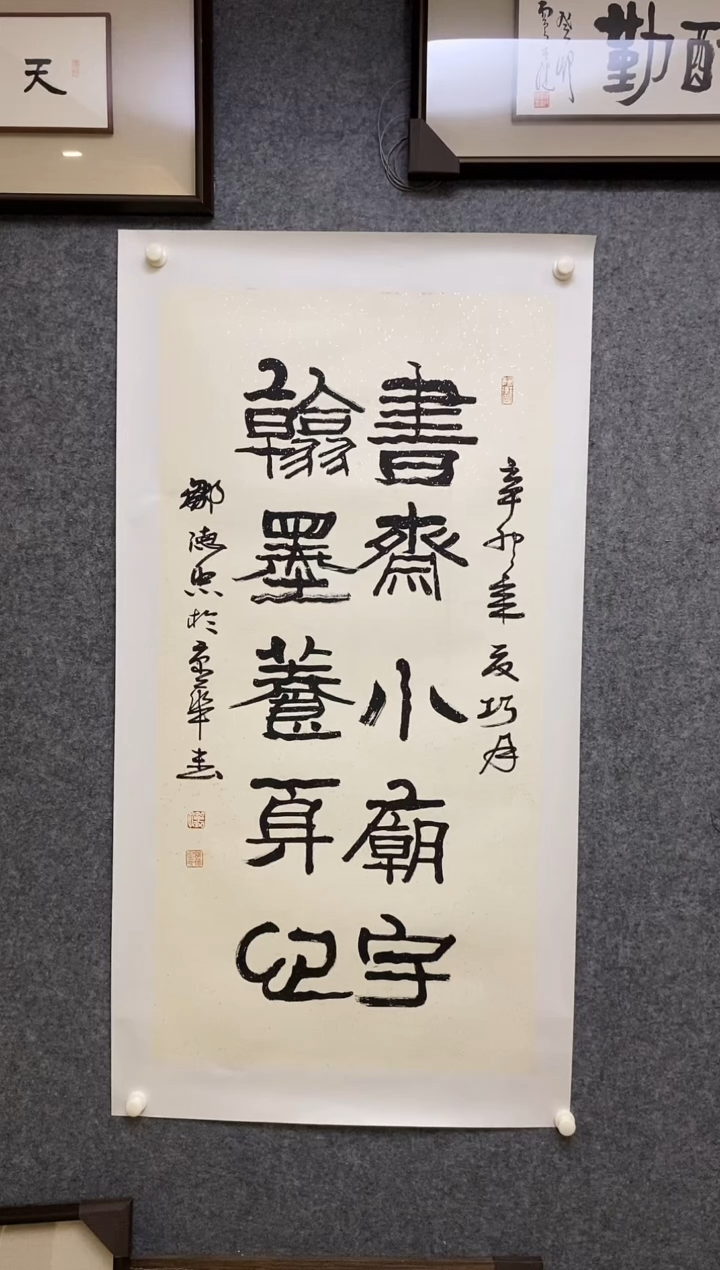 天
酬勤
癸卯
辛卯年夏巧月
書齋小廟宇
翰墨養身心
鄒德忠於京華書